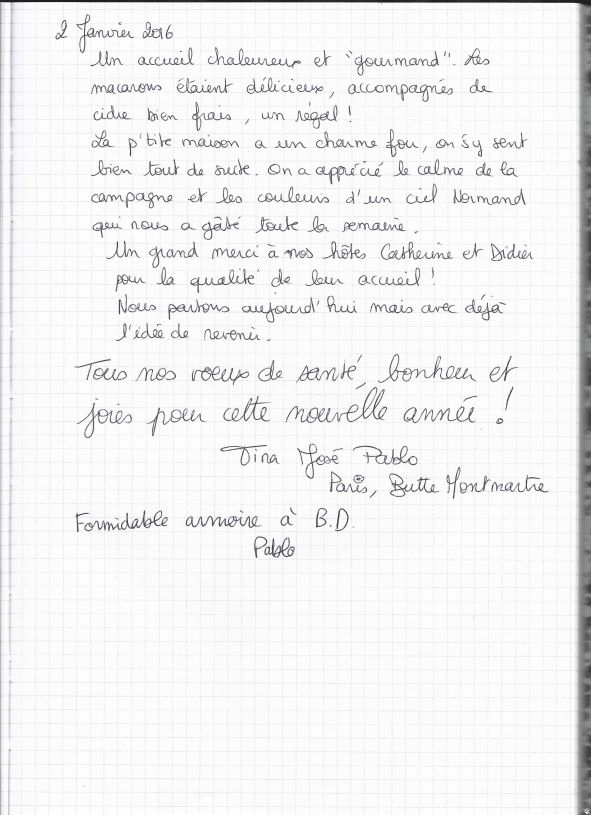 2 Janvier 2016
Un accueil chaleureux et "gourmand". Les
macarons étaient délicieux, accompagnés de
cidre bien frais, un régal !
La p'tite maison a un charme fou, on s'y sent
bien tout de suite. On a apprécié le calme de la
campagne et les couleurs d'un ciel Normand
qui nous a gâté toute la semaine.
Un grand merci à nos hôtes Catherine et Didier
pour la qualité de leur accueil !
Nous partons aujourd'hui mais avec déjà
l'idée de revenir.
Tous nos voeux de santé, bonheur et
joies pour cette nouvelle année !
Tina José Pablo
Paris, Butte Montmartre
Formidable armoire à B.D.
Pablo